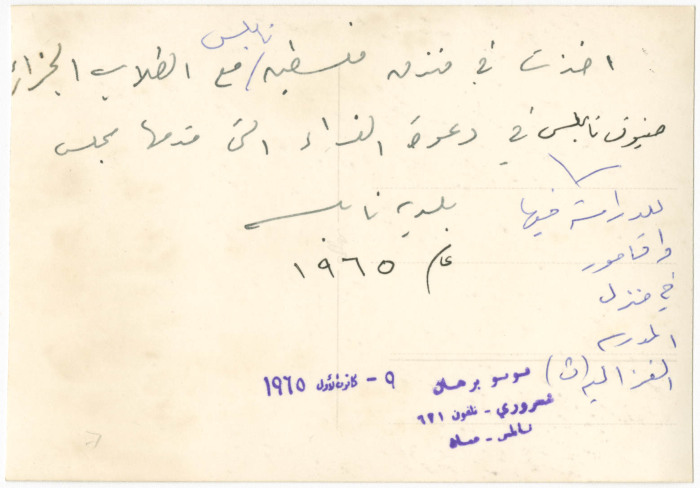 نابلس
اخذت في فندق فلسطين / مع الطلاب الجزائر
ضيوف نابلس في دعوة الغداء التي قدمها مجلس
بلدية نابلس
عام ١٩٦٥
للدراسة فيها
واقاموا
في منزل
المدرسة
الغزالية (ث)
٩ - كانون الأول ١٩٦٥
برهان
تلفون ٦٢١
نابلس